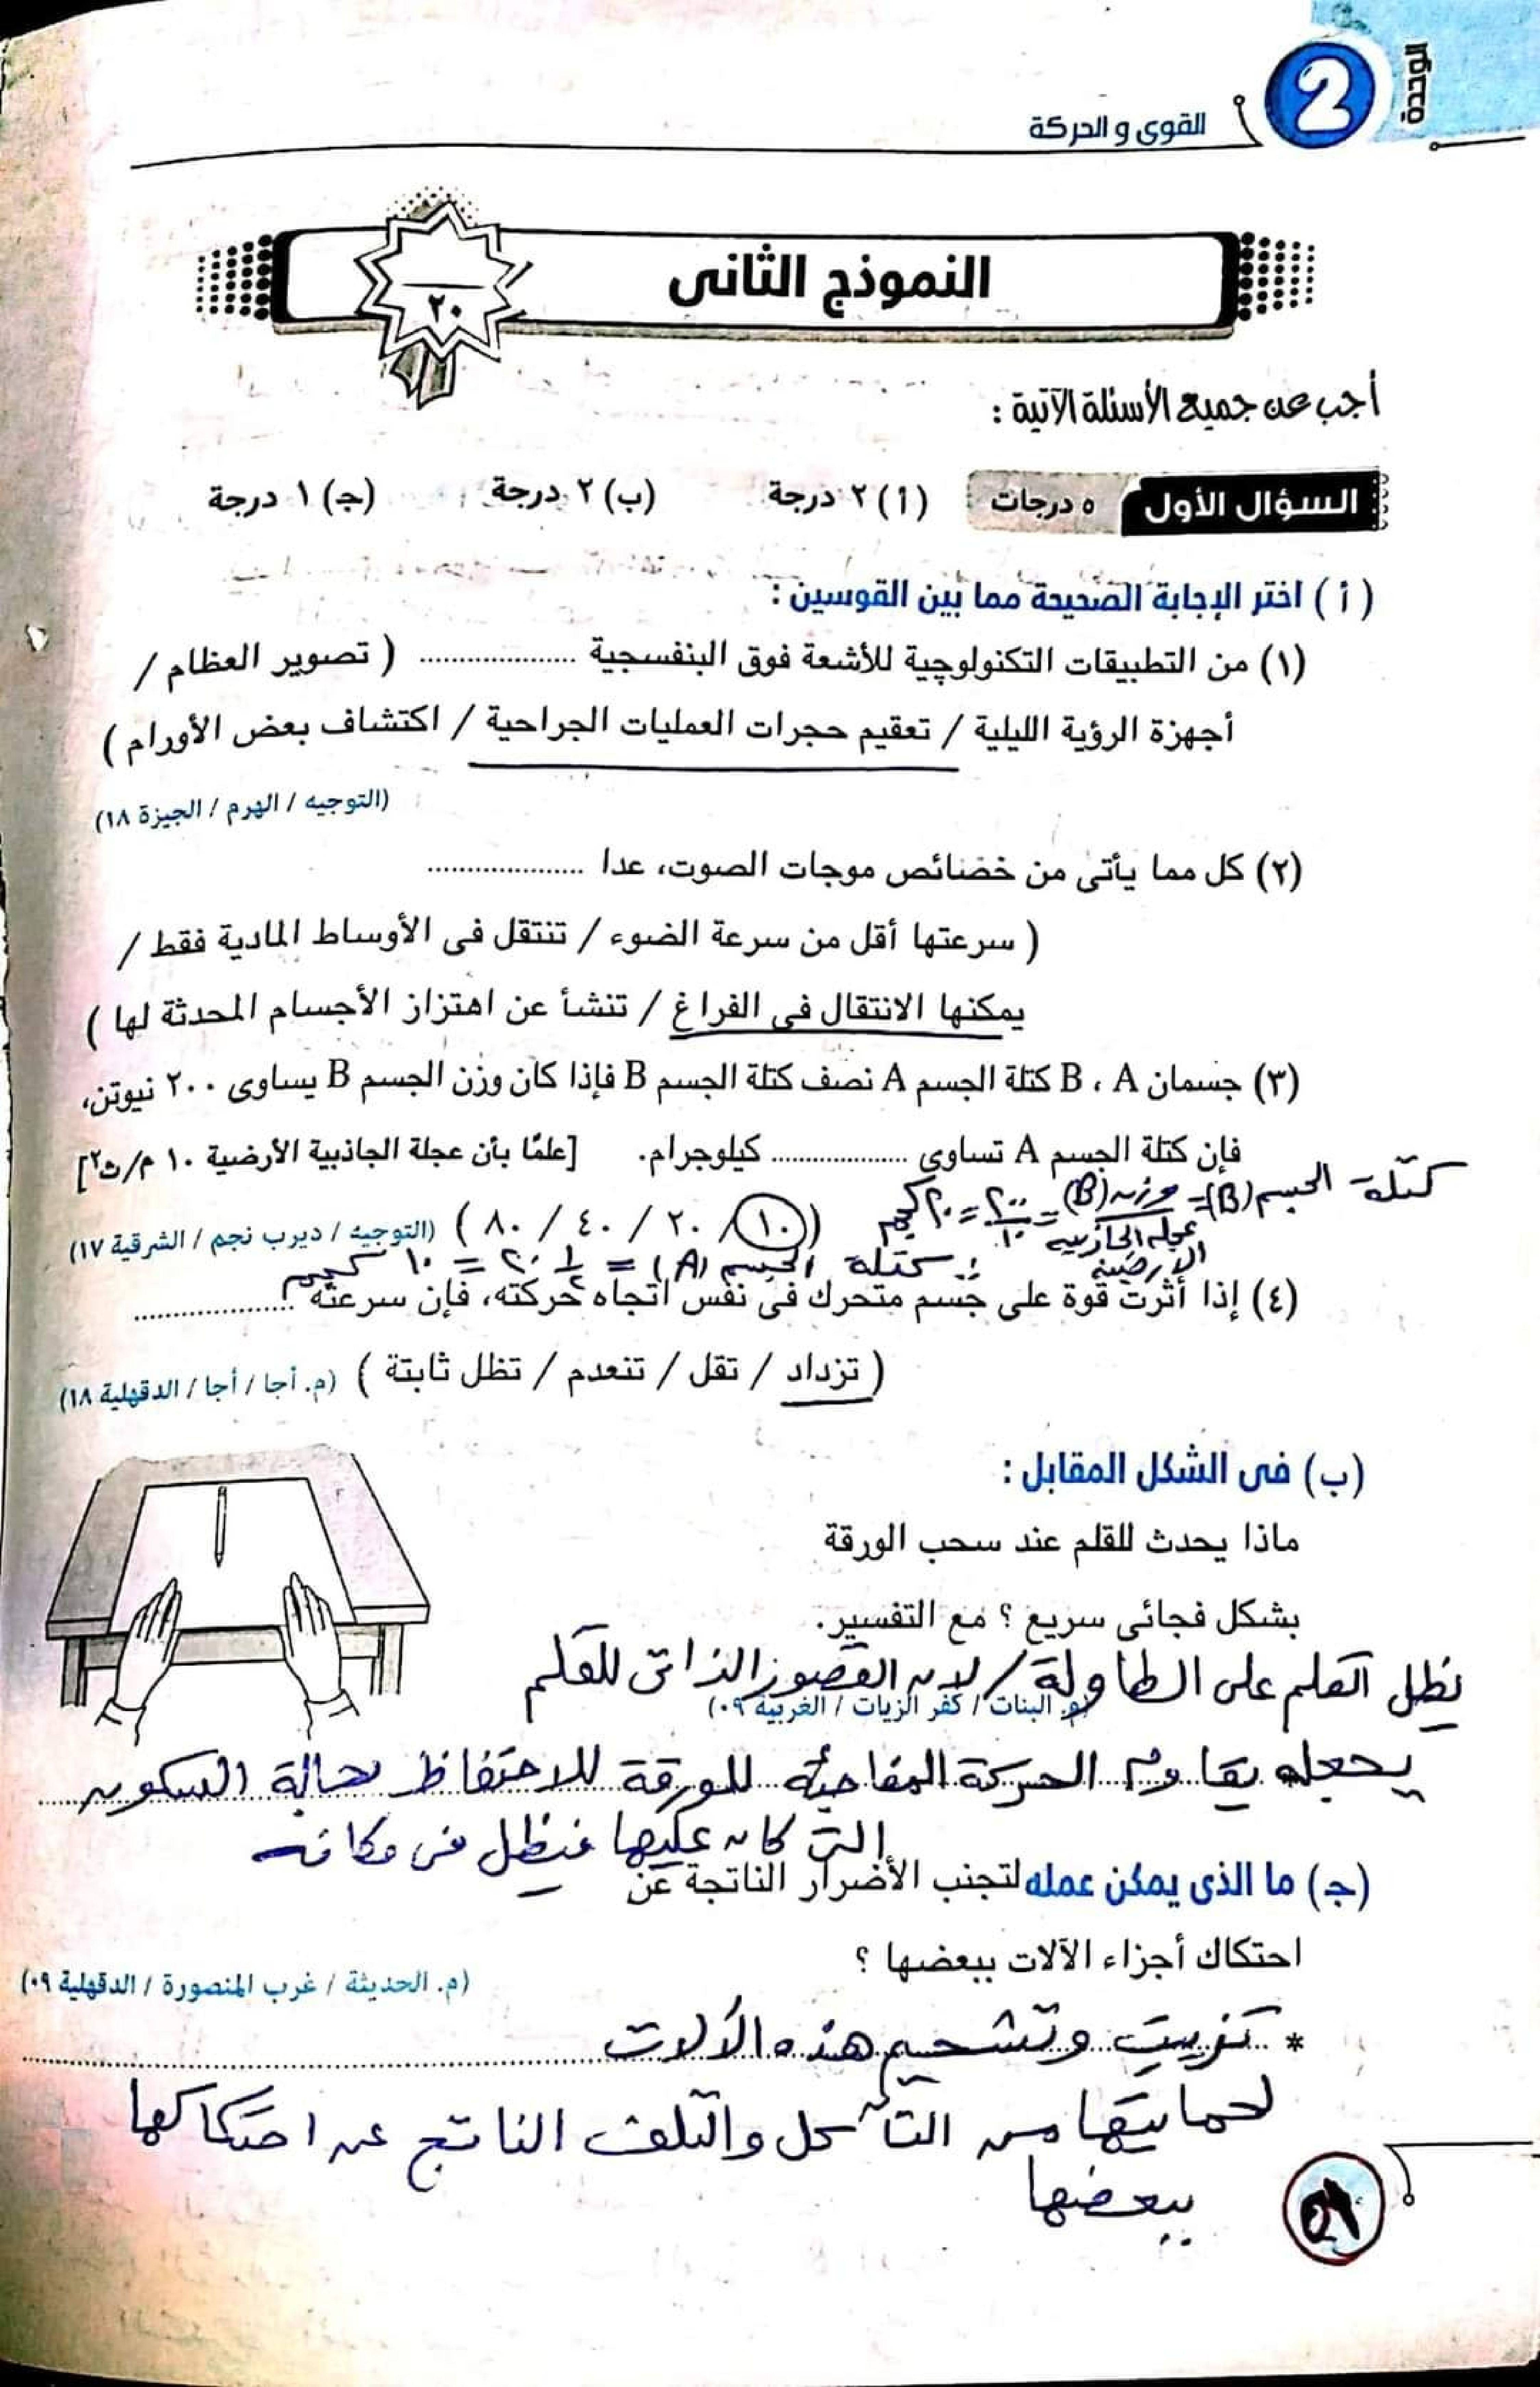 المحور
2
القوى و الحركة
النموذج الثانى
٢٠
أجب عن جميع الأسئلة الآتية :
السؤال الأول ٥ درجات (أ) ٢ درجة (ب) ٢ درجة (جـ) ١ درجة
(أ) اختر الإجابة الصحيحة مما بين القوسين :
(١) من التطبيقات التكنولوچية للأشعة فوق البنفسجية .................. ( تصوير العظام /
أجهزة الرؤية الليلية / تعقيم حجرات العمليات الجراحية / اكتشاف بعض الأورام )
(التوجيه / الهرم / الجيزة ١٨)
(٢) كل مما يأتى من خصائص موجات الصوت، عدا ..................
( سرعتها أقل من سرعة الضوء / تنتقل فى الأوساط المادية فقط /
يمكنها الانتقال فى الفراغ / تنشأ عن اهتزاز الأجسام المحدثة لها )
(٣) جسمان A ، B كتلة الجسم A نصف كتلة الجسم B فإذا كان وزن الجسم B يساوى ٢٠٠ نيوتن،
فإن كتلة الجسم A تساوى .................. كيلوجرام. [علمًا بأن عجلة الجاذبية الأرضية ١٠ م/ث٢]
كتلة الجسم (B) = وزن (B) / عجلة الجاذبية الأرضية = ٢٠٠ / ١٠ = ٢٠ كجم
( ١٠ / ٢٠ / ٤٠ / ٨٠ ) (التوجيه / ديرب نجم / الشرقية ١٧)
∴ كتلة الجسم (A) = ١/٢ ٢٠ = ١٠ كجم
(٤) إذا أثرت قوة على جسم متحرك فى نفس اتجاه حركته، فإن سرعته ..................
( تزداد / تقل / تنعدم / تظل ثابتة ) (م. أجا / أجا / الدقهلية ١٨)
(ب) فى الشكل المقابل :
ماذا يحدث للقلم عند سحب الورقة
بشكل فجائى سريع ؟ مع التفسير.
يظل القلم على الطاولة / لان القصور الذاتى للقلم
(م. البنات / كفر الزيات / الغربية ٠٩)
يجعله يقاوم الحركة المفاجئة للورقة للاحتفاظ بحالة السكون
التى كان عليها فيظل فى مكانه
(جـ) ما الذى يمكن عمله لتجنب الأضرار الناتجة عن
احتكاك أجزاء الآلات ببعضها ؟
(م. الحديثة / غرب المنصورة / الدقهلية ٠٩)
* تزييت وتشحيم هذه الآلات
لحمايتها من التآكل والتلف الناتج عن احتكاكها
ببعضها
٥٩